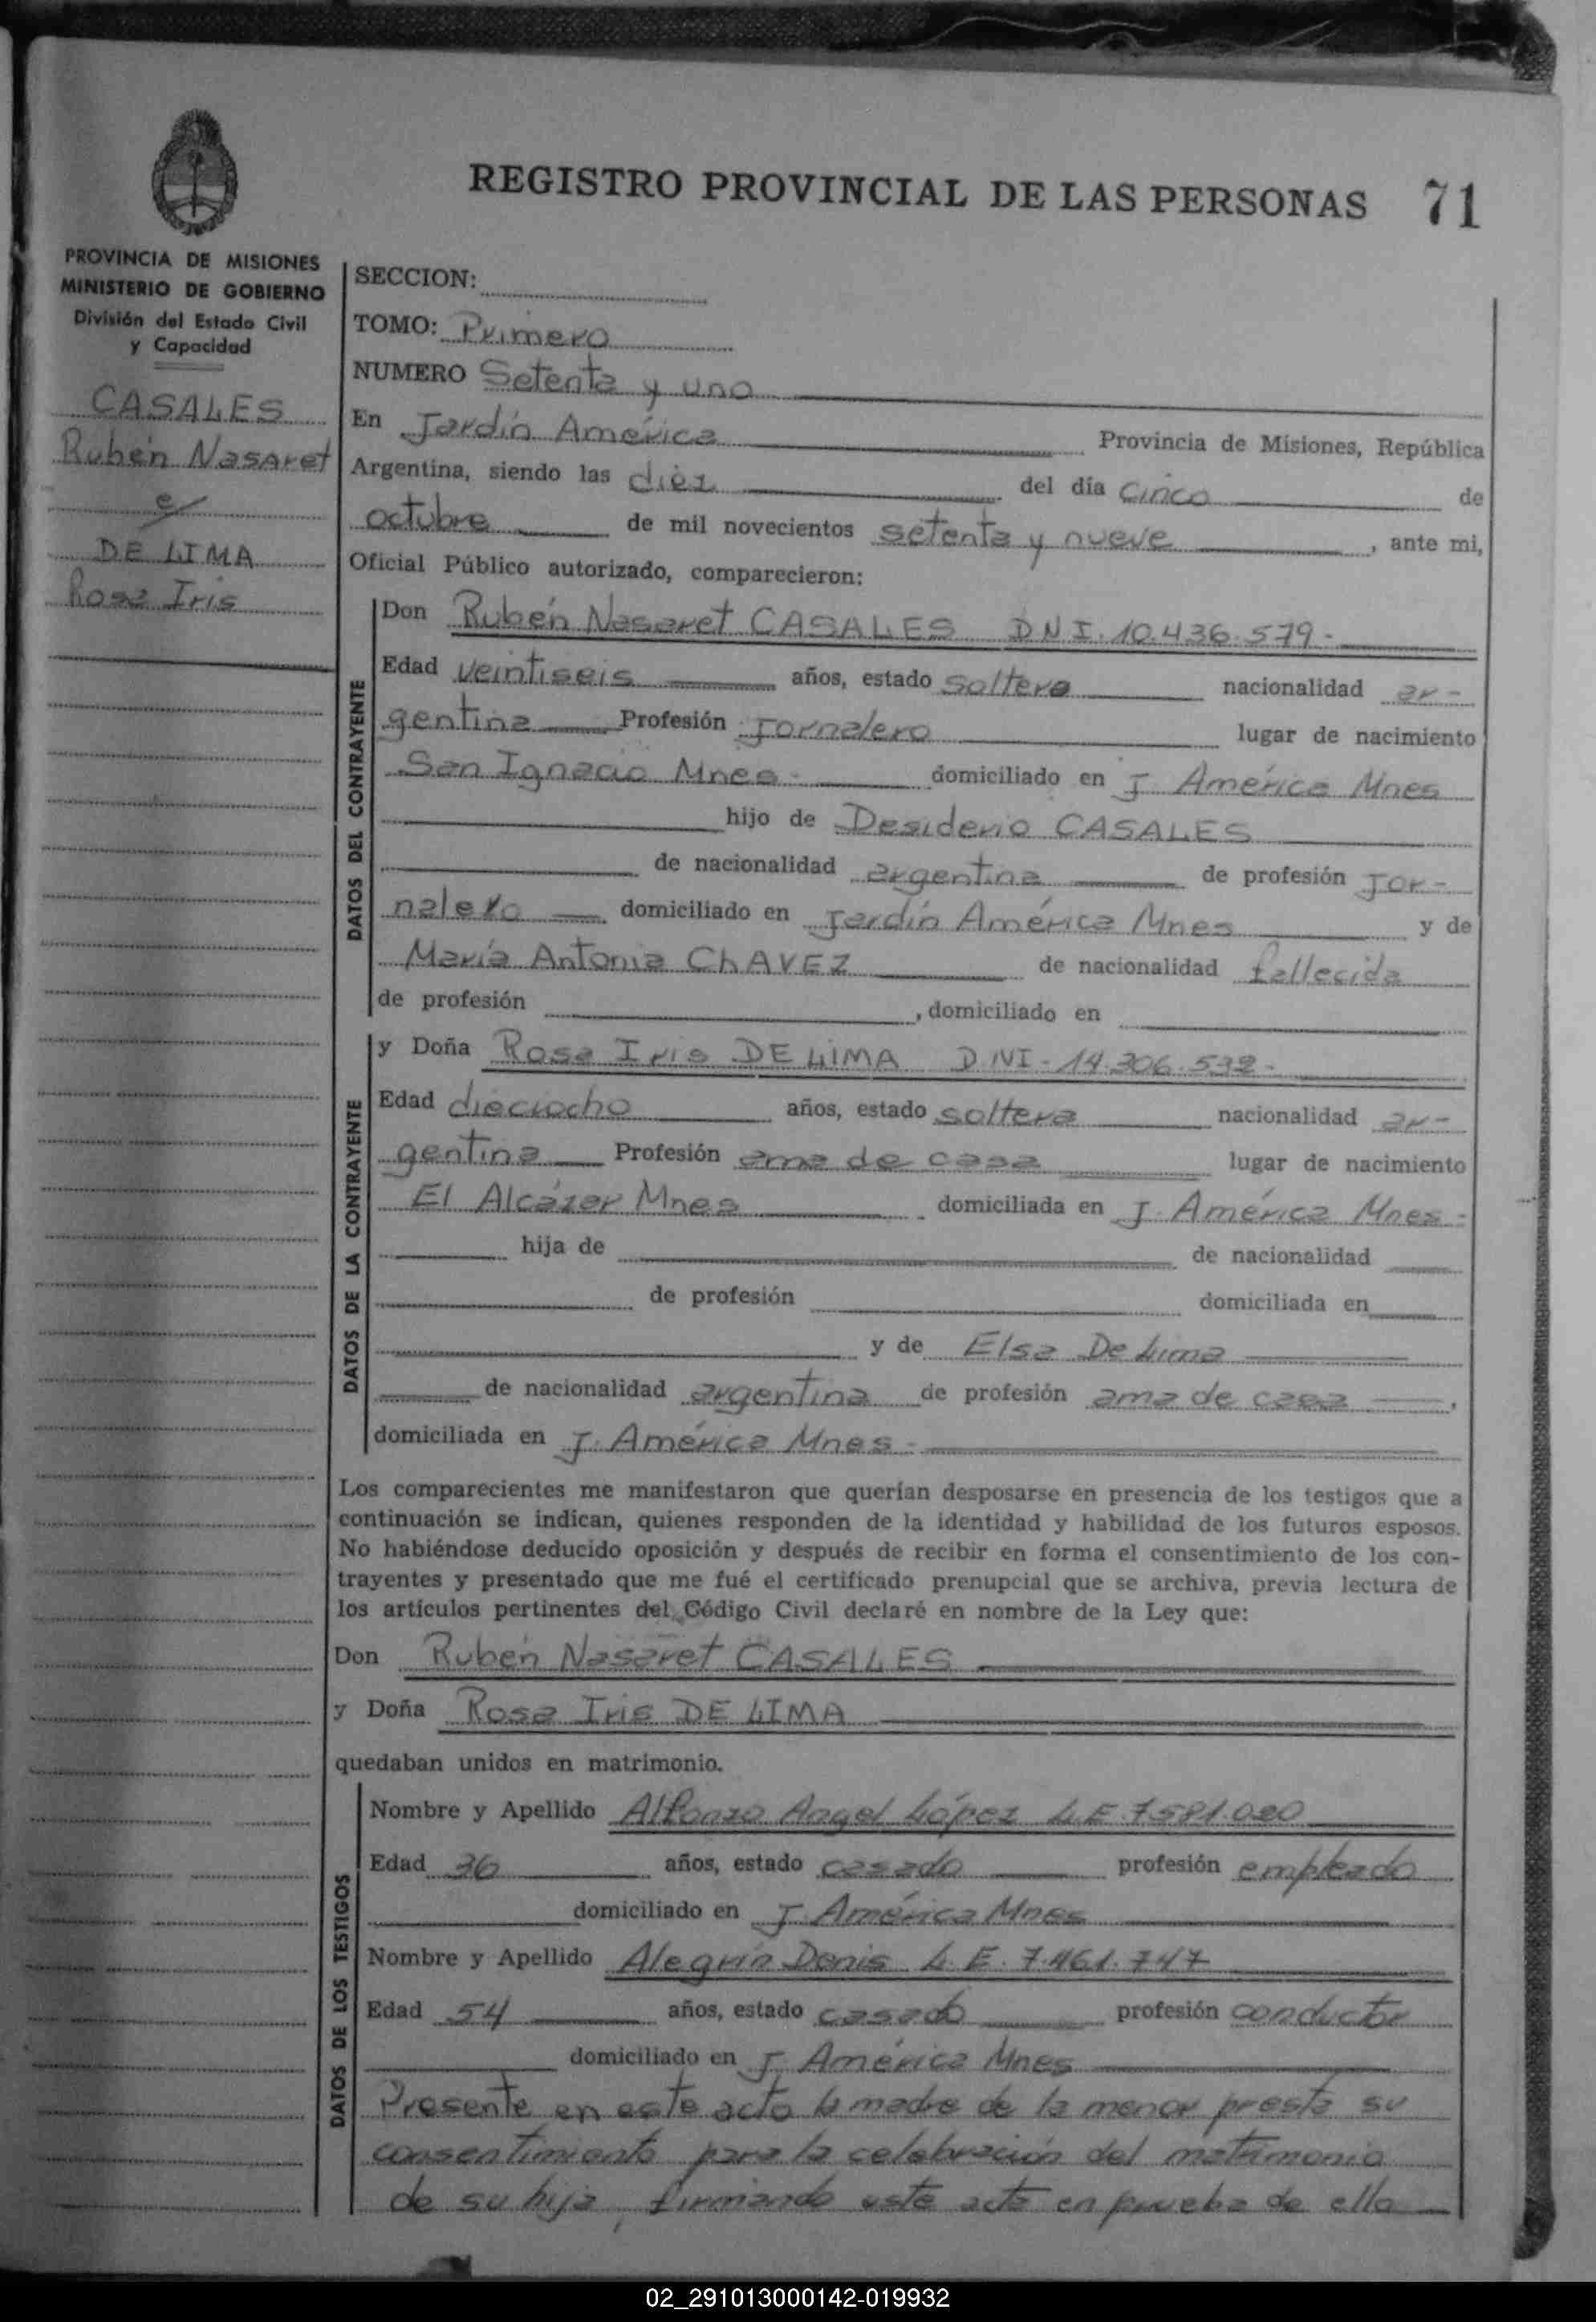 REGISTRO PROVINCIAL DE LAS PERSONAS 71
PROVINCIA DE MISIONES
MINISTERIO DE GOBIERNO
División del Estado Civil
y Capacidad
CASALES
Rubén Nasaret
c/
DE LIMA
Rosa Iris
SECCION:
TOMO: Primero
NUMERO Setenta y uno
En Jardín América Provincia de Misiones, República
Argentina, siendo las diez del día cinco de
octubre de mil novecientos setenta y nueve, ante mi,
Oficial Público autorizado, comparecieron:
DATOS DEL CONTRAYENTE
Don Rubén Nasaret CASALES DNI. 10.436.579-
Edad veintiseis años, estado soltero nacionalidad ar-
gentina Profesión Jornalero lugar de nacimiento
San Ignacio Mnes- domiciliado en J. América Mnes
hijo de Desiderio CASALES
de nacionalidad argentina de profesión Jor-
nalero domiciliado en Jardín América Mnes y de
María Antonia ChAVEZ de nacionalidad fallecida
de profesión , domiciliado en
DATOS DE LA CONTRAYENTE
y Doña Rosa Iris DE LIMA D.NI- 14.206.532-
Edad dieciocho años, estado soltera nacionalidad ar-
gentina Profesión ama de casa lugar de nacimiento
El Alcázar Mnes domiciliada en J. América Mnes-
hija de de nacionalidad
de profesión domiciliada en
y de Elsa De Lima
de nacionalidad argentina de profesión ama de casa ,
domiciliada en J. América Mnes-
Los comparecientes me manifestaron que querían desposarse en presencia de los testigos que a
continuación se indican, quienes responden de la identidad y habilidad de los futuros esposos.
No habiéndose deducido oposición y después de recibir en forma el consentimiento de los con-
trayentes y presentado que me fué el certificado prenupcial que se archiva, previa lectura de
los artículos pertinentes del Código Civil declaré en nombre de la Ley que:
Don Rubén Nasaret CASALES
y Doña Rosa Iris DE LIMA
quedaban unidos en matrimonio.
DATOS DE LOS TESTIGOS
Nombre y Apellido Alfonzo Angel López L.E. 7.581.020
Edad 36 años, estado casado profesión empleado
domiciliado en J. América Mnes
Nombre y Apellido Alegrín Denis L.E. 7.461.747
Edad 54 años, estado casado profesión conductor
domiciliado en J. América Mnes
Presente en este acto la madre de la menor presta su
consentimiento para la celebración del matrimonio
de su hija, firmando este acta en prueba de ello
02_291013000142-019932